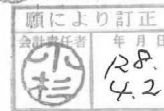 願により訂正
会計責任者
年月日
小杉
R8.
4.2